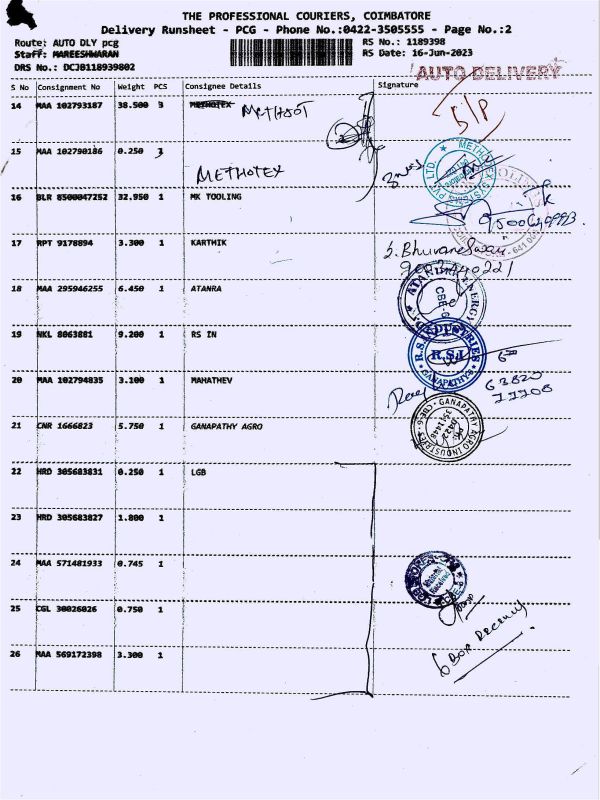 THE PROFESSIONAL COURIERS, COIMBATORE
Delivery Runsheet - PCG - Phone No.:0422-3505555 - Page No.:2
Route: AUTO DLY pcg RS No.: 1189398
Staff: MAREESHWARAN RS Date: 16-Jun-2023
DRS No.: DCJB118939802
AUTO DELIVERY
S No Consignment No Weight PCS Consignee Details Signature
14 MAA 102793187 38.500 3 METHOTEX
15 MAA 102790186 0.250
METHOTEX
16 BLR 8500047252 32.950 1 MK TOOLING
17 RPT 9178894 3.300 1 KARTHIK
18 MAA 295946255 6.450 1 ATANRA
19 NKL 8063881 9.200 1 RS IN
R.S. INDUSTRIES
R.S.I
GANAPATHY
20 MAA 102794835 3.100 1 MAHATHEV
21 CNR 1666823 5.750 1 GANAPATHY AGRO
GANAPATHY AGRO INDUSTRIES
22 HRD 305683831 0.250 1 LGB
23 HRD 305683827 1.800 1
24 MAA 571481933 0.745 1
25 CGL 30026026 0.750 1
26 MAA 569172398 3.300 1